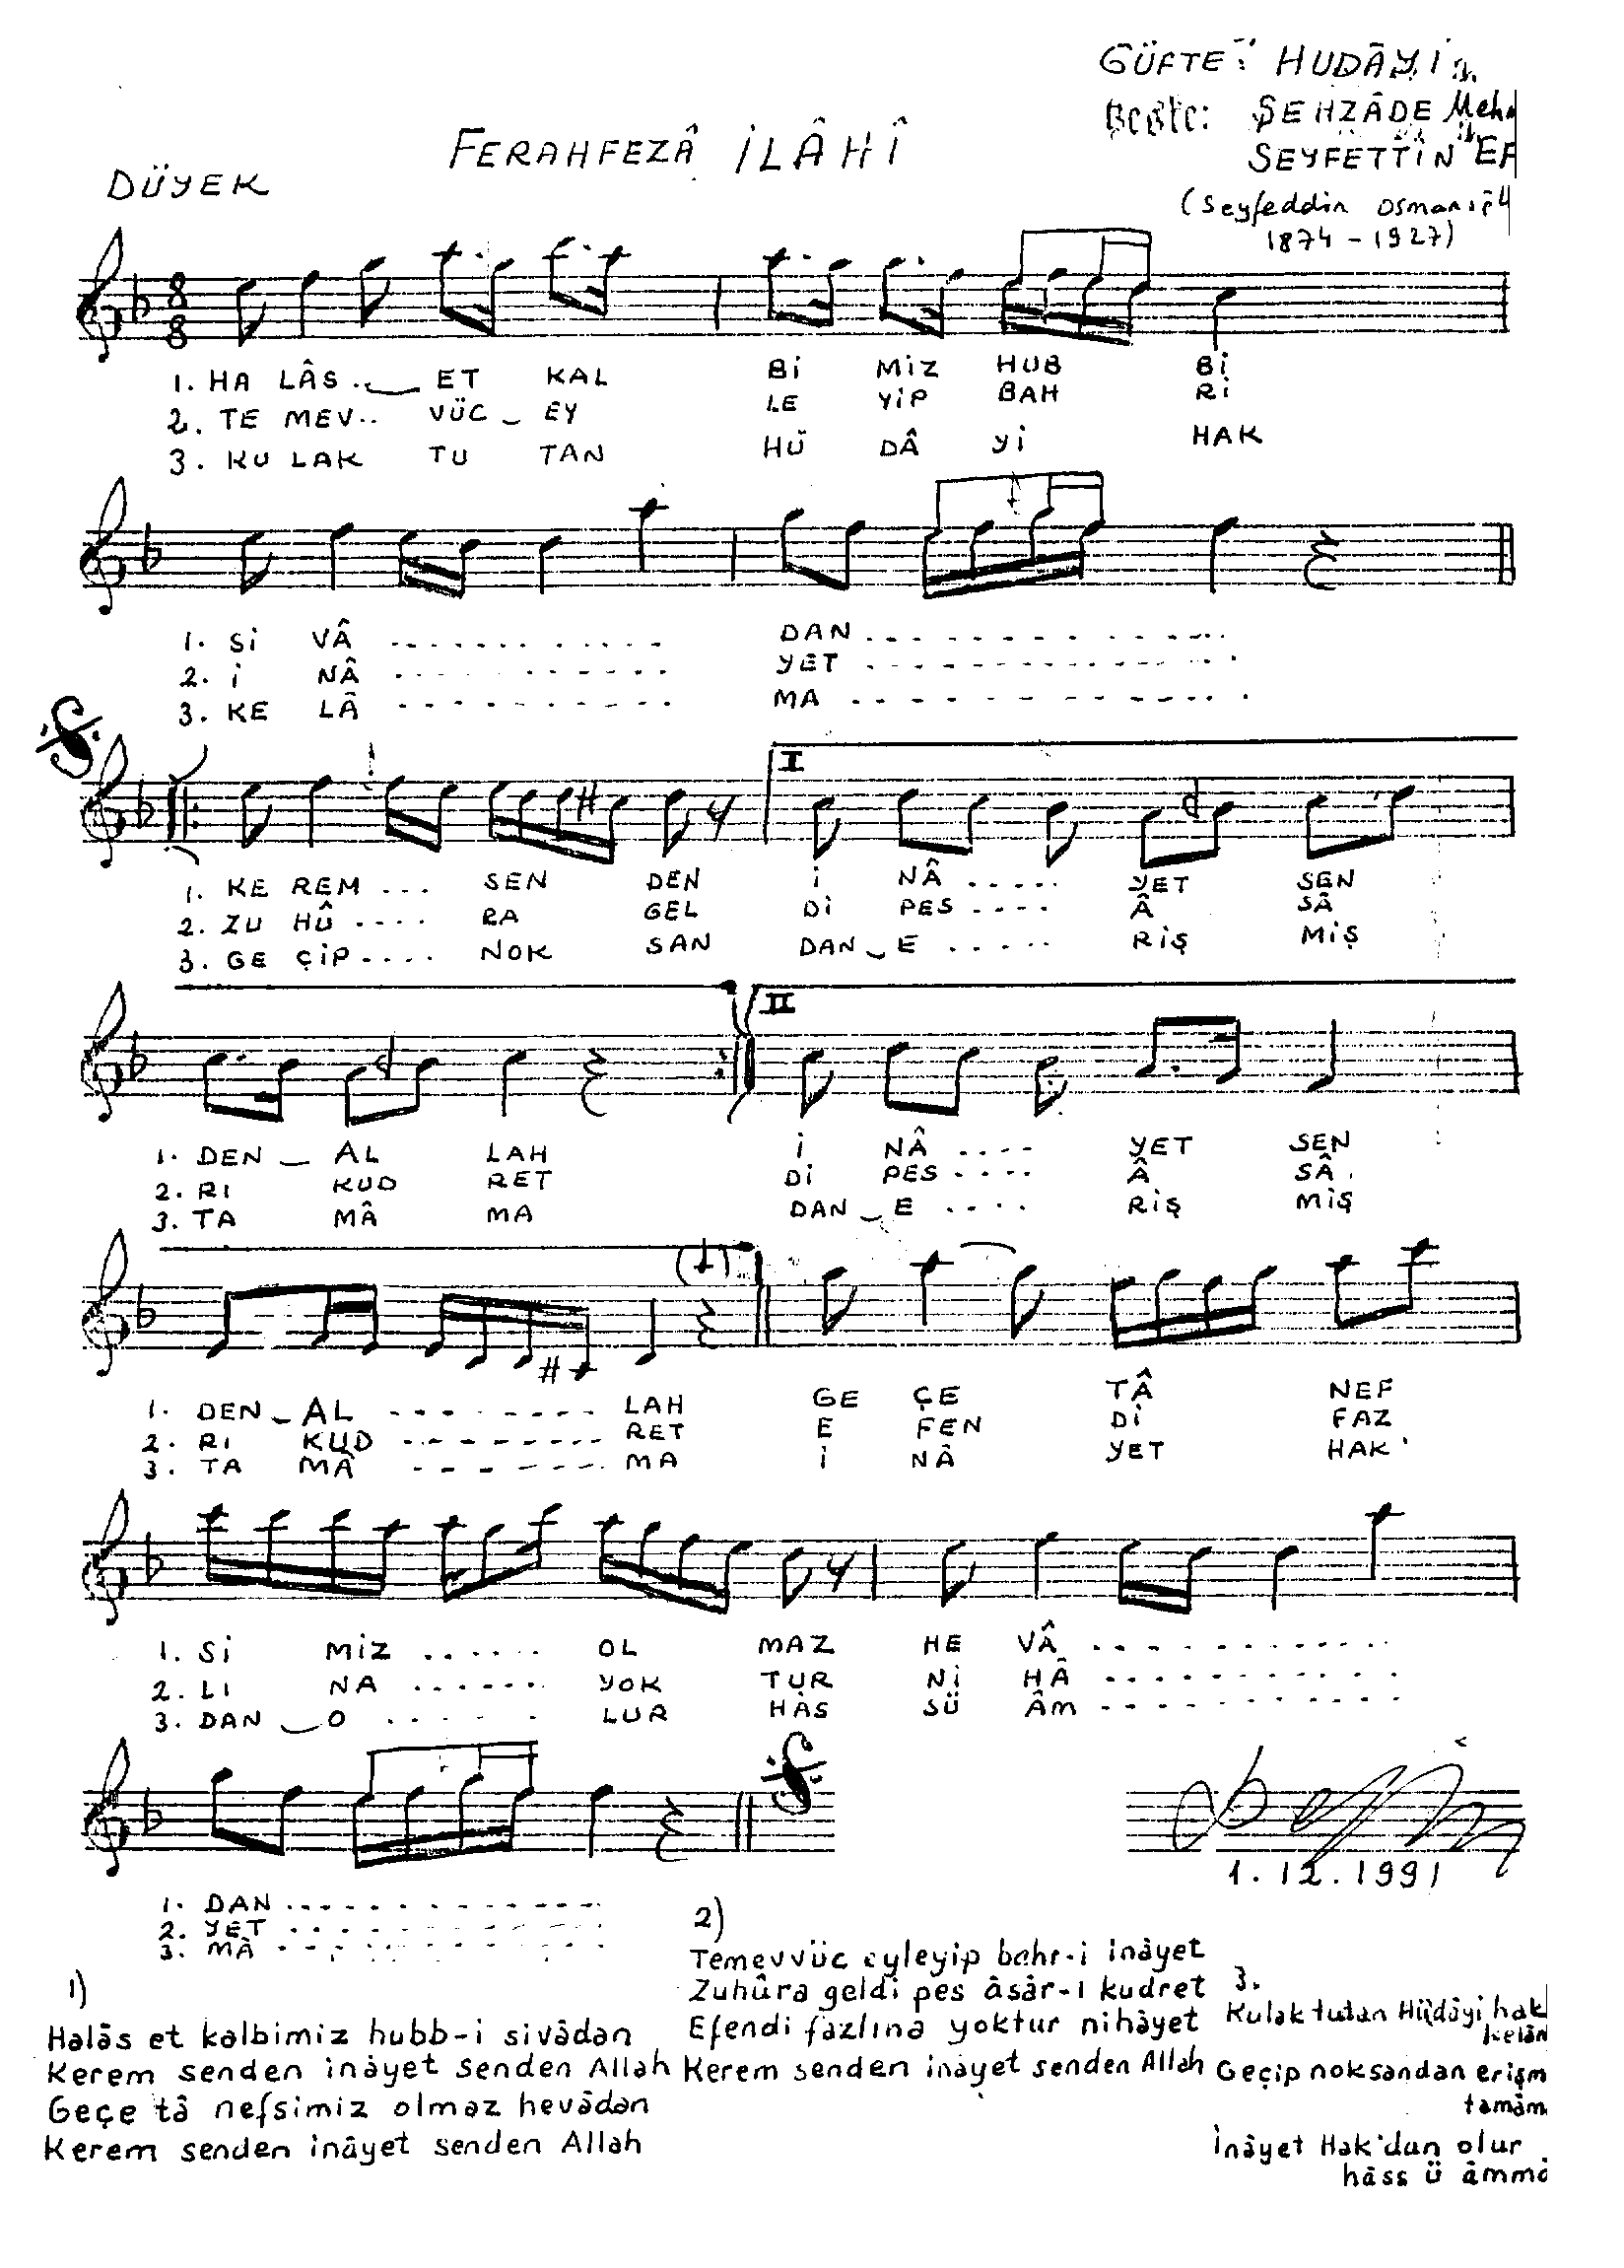 GÜFTE: HUDÂYİ
Beste: ŞEHZÂDE
FERAHFEZÂ İLÂHÎ
SEYFETTİN EF
DÜYEK
(Seyfeddin
1874 - 1927)
8
8
1. HA LÂS .. ET KAL Bİ MİZ HUB Bİ
2. TE MEV.. VÜC _ EY LE YİP BAH Rİ
3. KU LAK TU TAN HÜ DÂ Yİ HAK
1. Sİ VÂ ........... DAN ..............
2. İ NÂ ........... YET ..............
3. KE LÂ ........... MA ..............
I
1. KE REM ... SEN DEN İ NÂ ..... YET SEN
2. ZU HÛ .... RA GEL Dİ PES .... Â SÂ
3. GE ÇİP .... NOK SAN DAN _ E ..... RİŞ MİŞ
II
1. DEN _ AL LAH İ NÂ .... YET SEN
2. RI KUD RET Dİ PES .... Â SÂ .
3. TA MÂ MA DAN _ E .... RİŞ MİŞ
1. DEN _ AL --------- LAH GE ÇE TÂ NEF
2. RI KUD --------- RET E FEN Dİ FAZ
3. TA MÂ --------- MA İ NÂ YET HAK'
1. Sİ MİZ ...... OL MAZ HE VÂ ............
2. LI NA ...... YOK TUR Nİ HÂ ............
3. DAN _ O ..... LUR HAS SÜ ÂM ............
1.12.1991
1. DAN ..............
2. YET ..............
3. MÂ ..............
1)
Halâs et kalbimiz hubb-i sivâdan
Kerem senden inâyet senden Allah
Geçe tâ nefsimiz olmaz hevâdan
Kerem senden inâyet senden Allah
2)
Temevvüc eyleyip bahr-i inâyet
Zuhûra geldi pes âsâr-ı kudret
Efendi fazlına yoktur nihâyet
Kerem senden inâyet senden Allah
3.
Kulak tutan Hüdâyi hak
kelâm
Geçip noksandan erişm
tamâm
İnâyet Hak'dan olur
hâss ü âmma